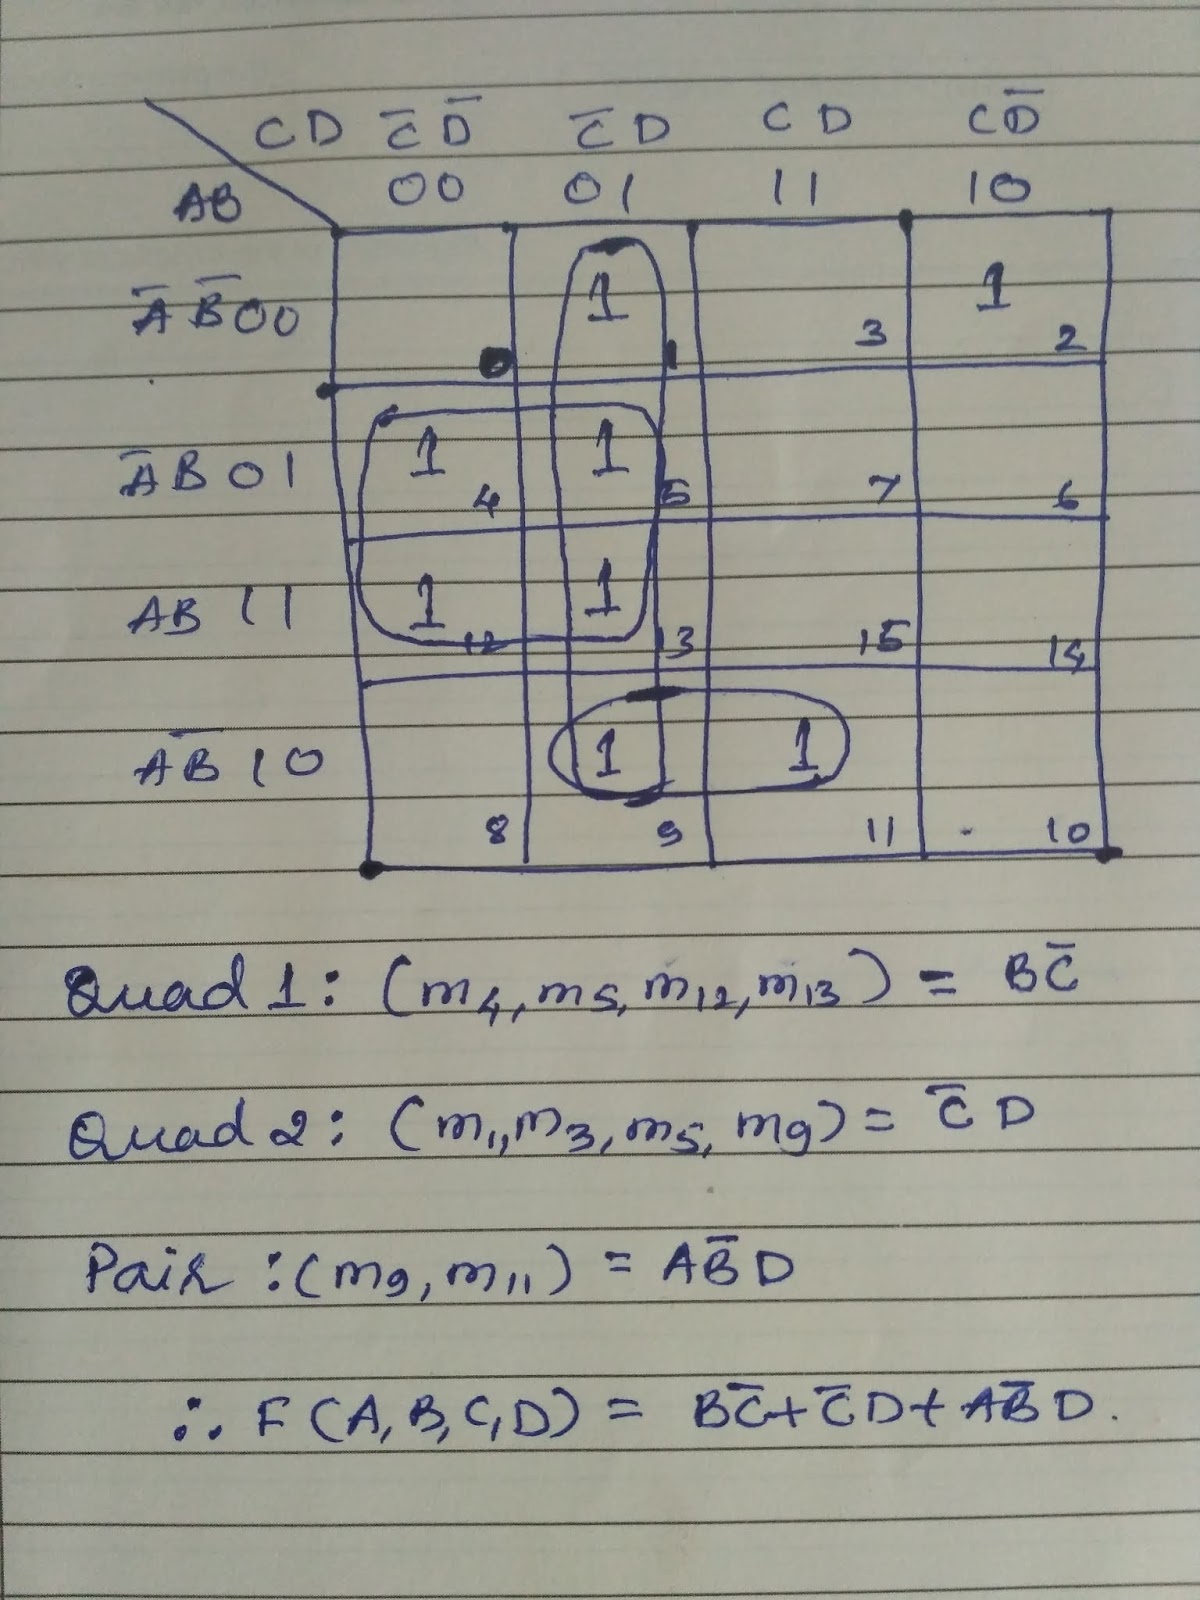 CD C̅D̅ C̅D CD CD̅
AB 00 01 11 10
A̅B̅00 1 1
0 1 3 2
A̅B01 1 1
4 5 7 6
AB 11 1 1
12 13 15 14
AB̅ 10 1 1
8 9 11 10
Quad 1: (m4, m5, m12, m13) = BC̅
Quad 2: (m1, m3, m5, m9) = C̅D
Pair :(m9, m11) = AB̅D
∴ F(A,B,C,D) = BC̅+C̅D+AB̅D.